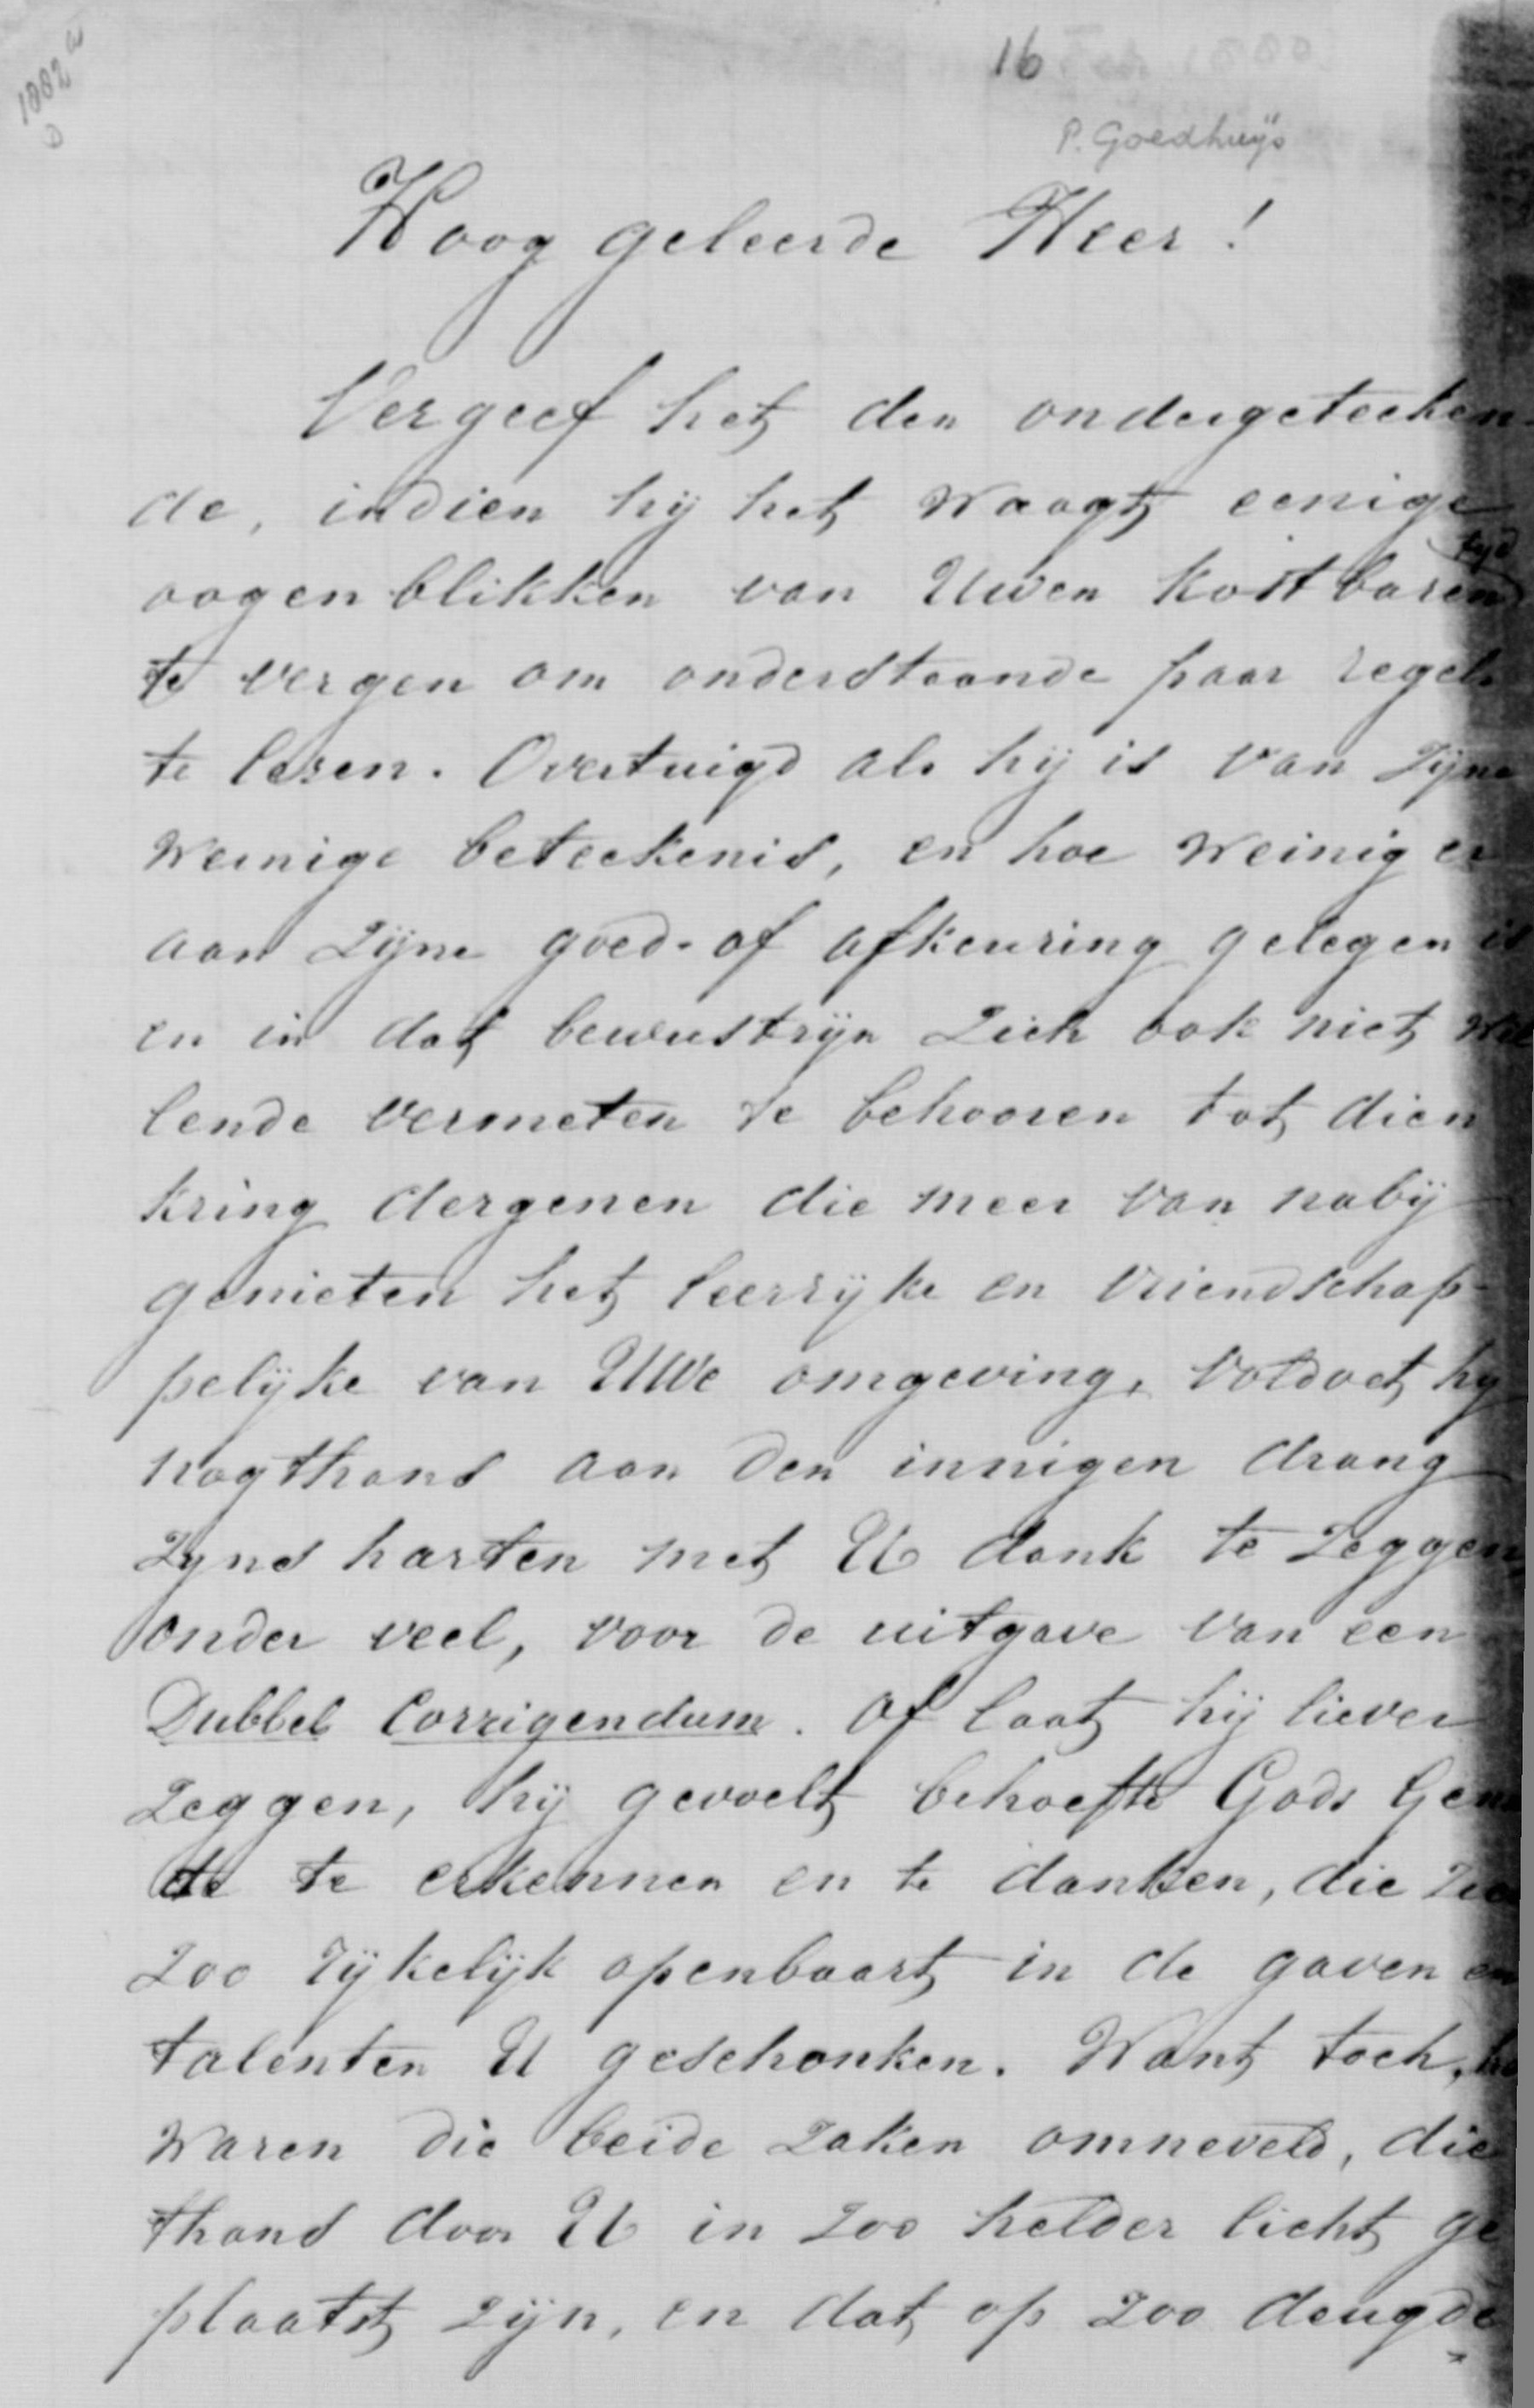 1882
16
P. Goedhuÿs
Hoog geleerde Heer!
Vergeef het den ondergeteeken-
de, indien hij het waagt eenige
tijd
oogenblikken van Uwen kostbaren
te vergen om onderstaande paar regels
te lezen. Overtuigd als hij is van zijne
weinige beteekenis, en hoe weinig er
aan zijne goed- of afkeuring gelegen is
en in dat bewustzijn zich ook niet wil
lende vermeten te behooren tot dien
kring dergenen die meer van nabij
genieten het leerrijke en vriendschap-
pelijke van Uwe omgeving, voldoet hij
nogthans aan den innigen drang
zijns harten met U dank te zeggen,
onder veel, voor de uitgave van een
Dubbel Corrigendum. Of laat hij liever
zeggen, hij gevoelt behoefte Gods Gena
de te erkennen en te danken, die
zoo rijkelijk openbaart in de gaven en
talenten U geschonken. Want toch, ho
waren die beide zaken omneveld, die
thans door U in zoo helder licht ge
plaatst zijn, en dat op zoo deugde